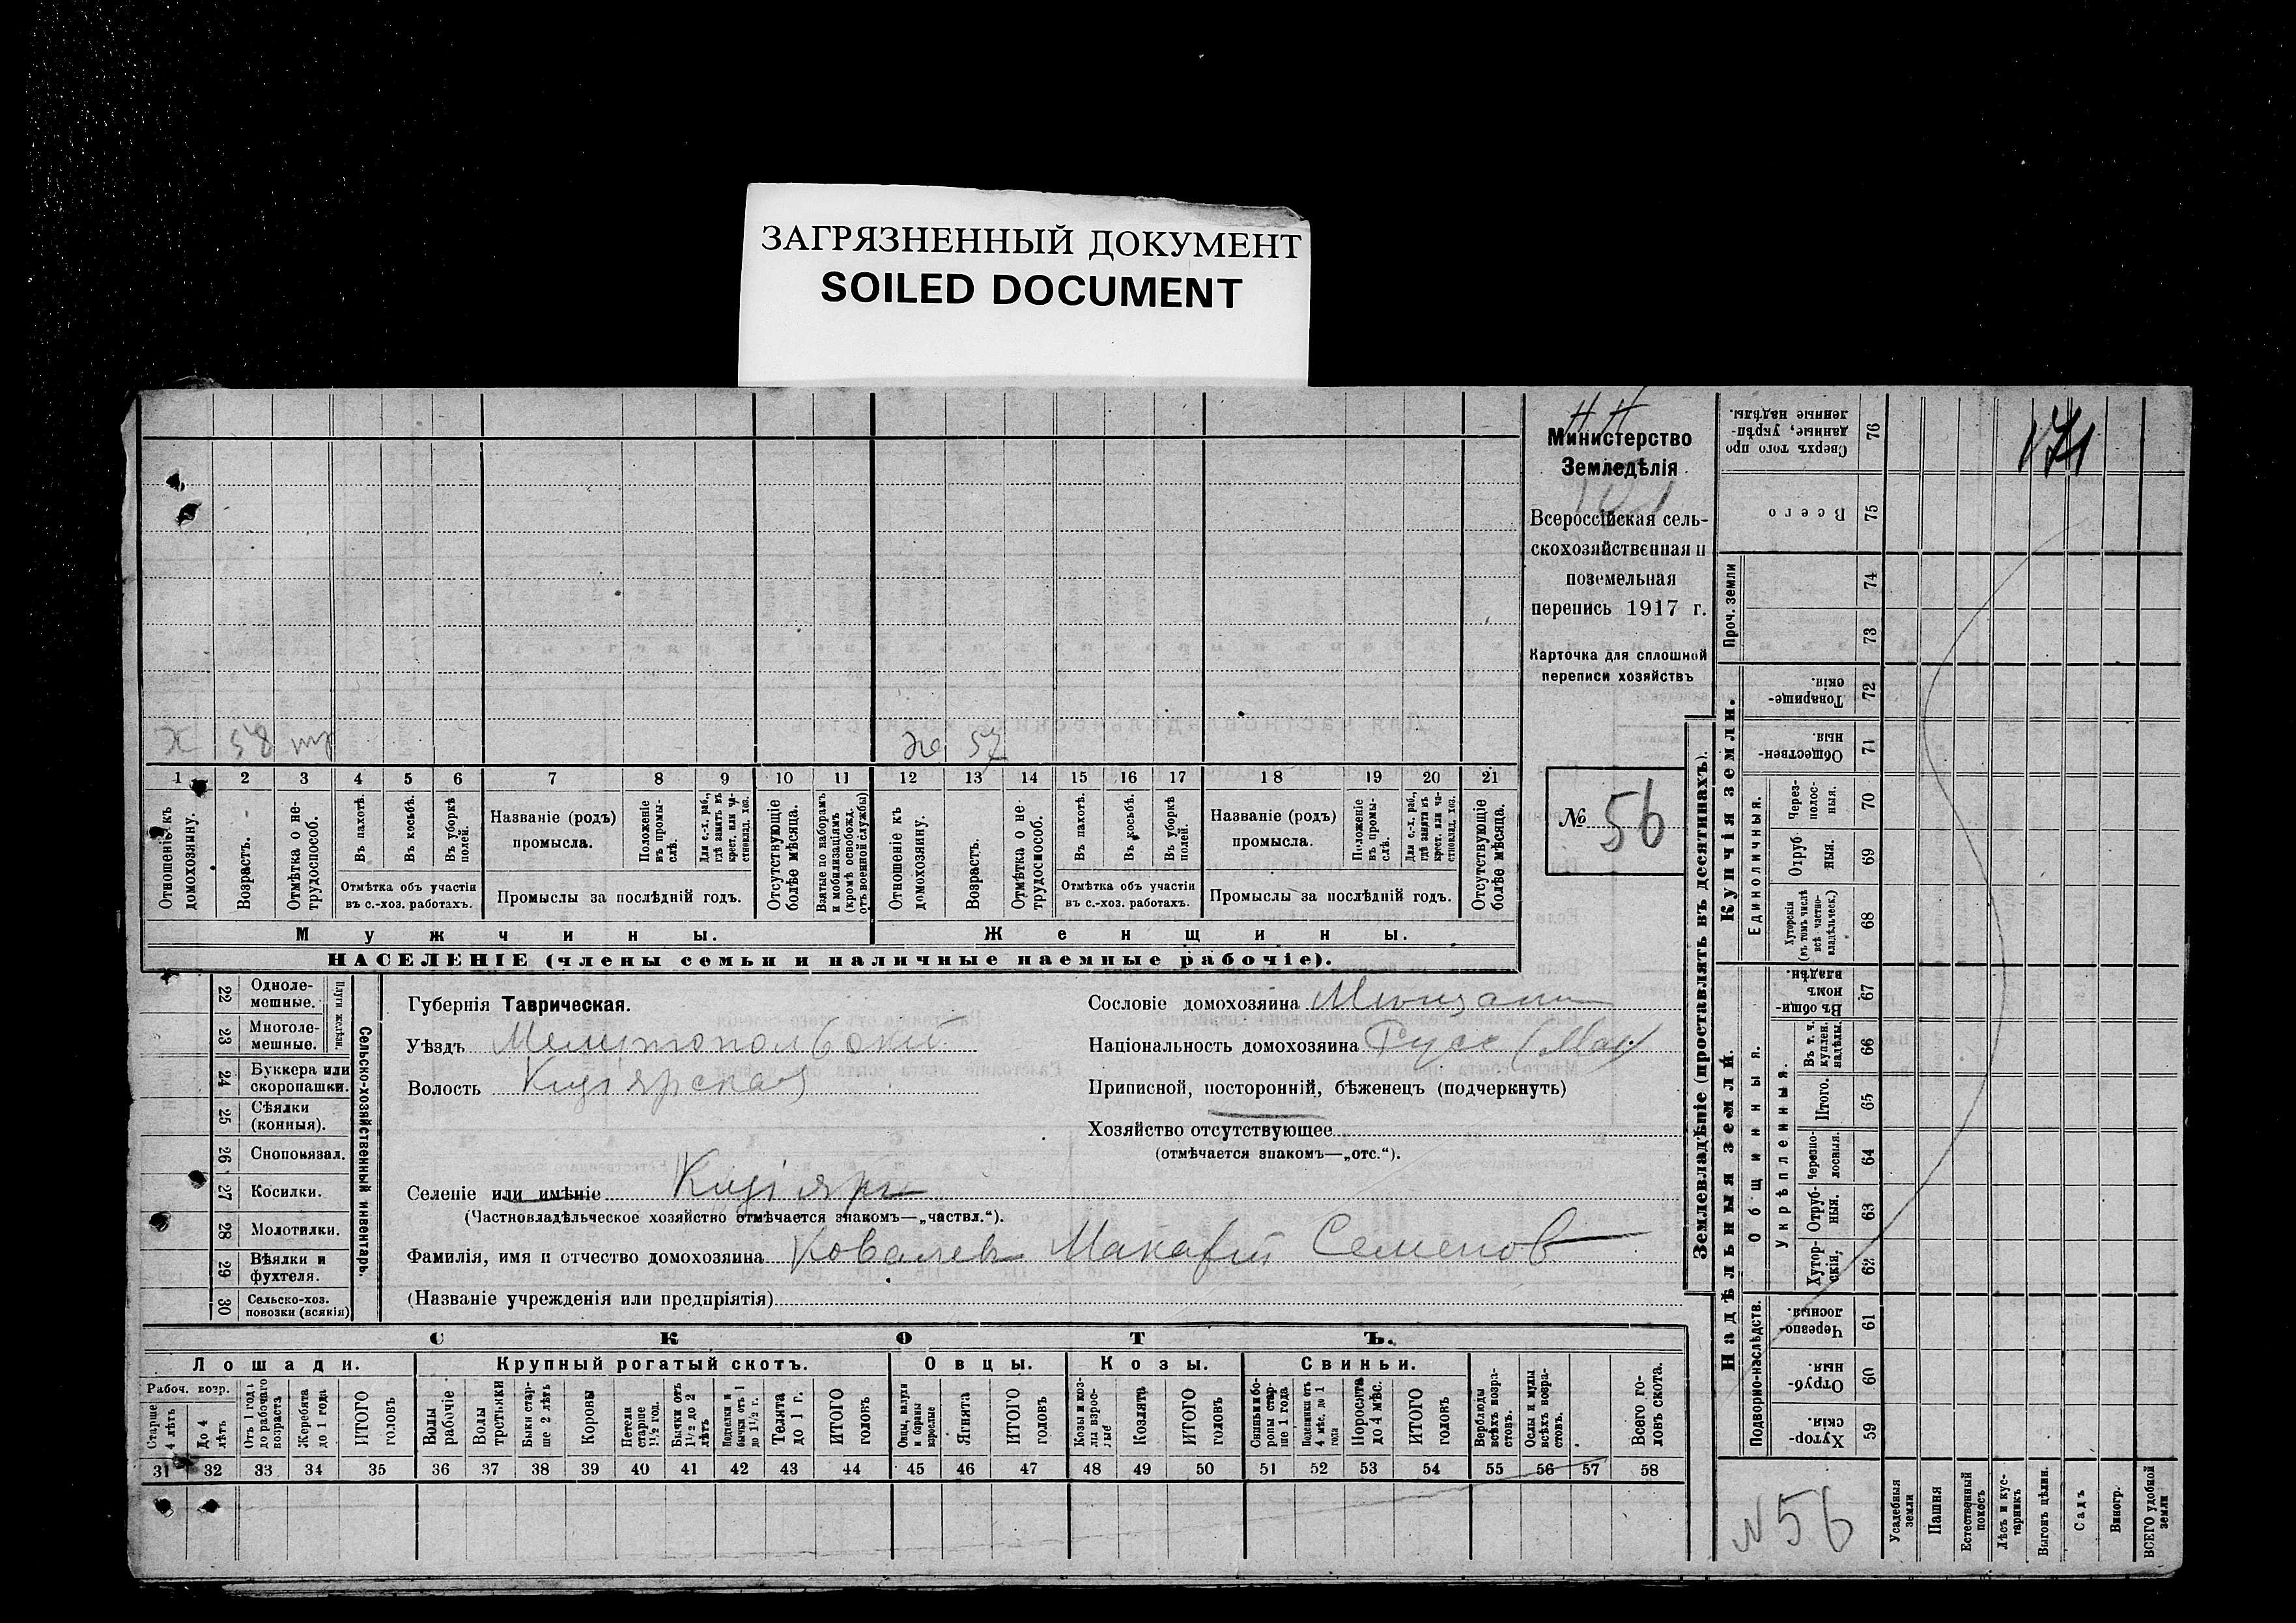 ЗАГРЯЗНЕННЫЙ ДОКУМЕНТ
SOILED DOCUMENT
Министерство
Земледѣлія
Всероссійская сель-
скохозяйственная и
поземельная
перепись 1917 г.
Карточка для сплошной
переписи хозяйствъ
№ 56
171
х 58
же 57
1 2 3 4 5 6 7 8 9 10 11 12 13 14 15 16 17 18 19 20 21
Отношеніе къ домохозяину.
Возрастъ.
Отмѣтка о не-трудоспособ.
Въ пахотѣ.
Въ косьбѣ.
Въ уборкѣ полей.
Отмѣтка объ участіи
въ с.-хоз. работахъ.
Названіе (родъ)
промысла.
Положеніе въ промы-слѣ.
Для с.-х. раб., гдѣ занятъ въ крест. или ча-стновлад. хоз.
Промыслы за послѣдній годъ.
Отсутствующіе болѣе мѣсяца.
Взятые по наборамъ и мобилизаціямъ (кромѣ освобожд. отъ военной службы)
Отношеніе къ домохозяину.
Возрастъ.
Отмѣтка о не-трудоспособ.
Въ пахотѣ.
Въ косьбѣ.
Въ уборкѣ полей.
Отмѣтка объ участіи
въ с.-хоз. работахъ.
Названіе (родъ)
промысла.
Положеніе въ промы-слѣ.
Для с.-х. раб., гдѣ заняты въ крест. или ча-стновлад. хоз.
Промыслы за послѣдній годъ.
Отсутствующіе болѣе мѣсяца.
Мужчины. Женщины.
НАСЕЛЕНІЕ (члены семьи и наличные наемные рабочіе).
Сельско-хозяйственный инвентарь.
Плуги желѣзн.
22 Одноле-мешные.
23 Многоле-мешные.
24 Буккера или скоропашки.
25 Сѣялки (конныя).
26 Сноповязал.
27 Косилки.
28 Молотилки.
29 Вѣялки и фухтеля.
30 Сельско-хоз. повозки (всякія)
Губернія Таврическая.
Уѣздъ Мелитопольскій
Волость Кизіярская
Селеніе или имѣніе Кизіяръ
(Частновладѣльческое хозяйство отмѣчается знакомъ—„частвл.“).
Фамилія, имя и отчество домохозяина Ковалевъ Макафій Семенов
(Названіе учрежденія или предпріятія)
Сословіе домохозяина Мѣщанин
Національность домохозяина Русс (Мал)
Приписной, посторонній, бѣженец (подчеркнуть)
Хозяйство отсутствующее
(отмѣчается знакомъ—„отс.“).
СКОТЪ.
Лошади. Крупный рогатый скотъ. Овцы. Козы. Свиньи.
Рабоч. возр.
Старше 4 лѣтъ
До 4 лѣтъ
Отъ 1 года до рабочаго возраста
Жеребята до 1 года
ИТОГО головъ
Волы рабочіе
Волы третьяки
Быки стар-ше 2 лѣтъ
Коровы
Нетели старше 1½ год.
Бычки отъ 1½ до 2 лѣтъ
Подтелки и бычки отъ 1 до 1½ г.
Телята до 1 г.
ИТОГО головъ
Овцы, валухи и бараны взрослые
Ягнята
ИТОГО головъ
Козы и коз-лы взрос-лые
Козлята
ИТОГО головъ
Свиньи и бо-ровы стар-ше 1 года
Подсвинки отъ 4 мѣс. до 1 года
Поросята до 4 мѣс.
ИТОГО головъ
Верблюды всѣхъ возра-стовъ.
Ослы и мулы всѣхъ возра-стовъ.
Всего го-ловъ скота.
31 32 33 34 35 36 37 38 39 40 41 42 43 44 45 46 47 48 49 50 51 52 53 54 55 56 57 58
Землевладѣніе (проставлять въ десятинахъ).
Надѣльныя земли.
Купчія земли.
Проч. земли
Подворно-наслѣдств.
Общинныя.
Укрѣпленныя.
Единоличныя.
76 Сверхъ того про-данные, укрѣп-ленные надѣлы.
75 Всего
74
73
72 Товарище-скія.
71 Обществен-ныя.
70 Через-полос-ныя.
69 Отруб-ныя.
68 Хуторскія (въ томъ числѣ всѣ частно-владѣльческ.)
67 Въ общи-номъ владѣн.
66 Въ т. ч. куплен. надѣлы.
65 Итого.
64 Черезпо-лосныя.
63 Отруб-ныя.
62 Хутор-скія,
61 Черезпо-лосныя.
60 Отруб-ныя
59 Хутор-скія.
N 56
Усадебныя земли
Пашня
Естественный покосъ
Лѣсъ и кус-тарникъ
Выгонъ цѣлин.
Садъ
Виногр.
ВСЕГО удобной земли